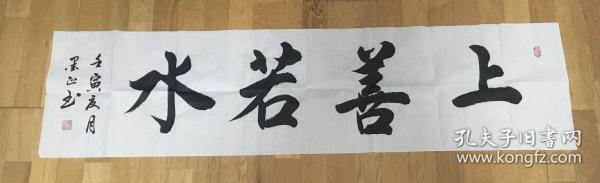 上善若水
壬寅夏月
墨正书
孔夫子旧书网
www.kongfz.com